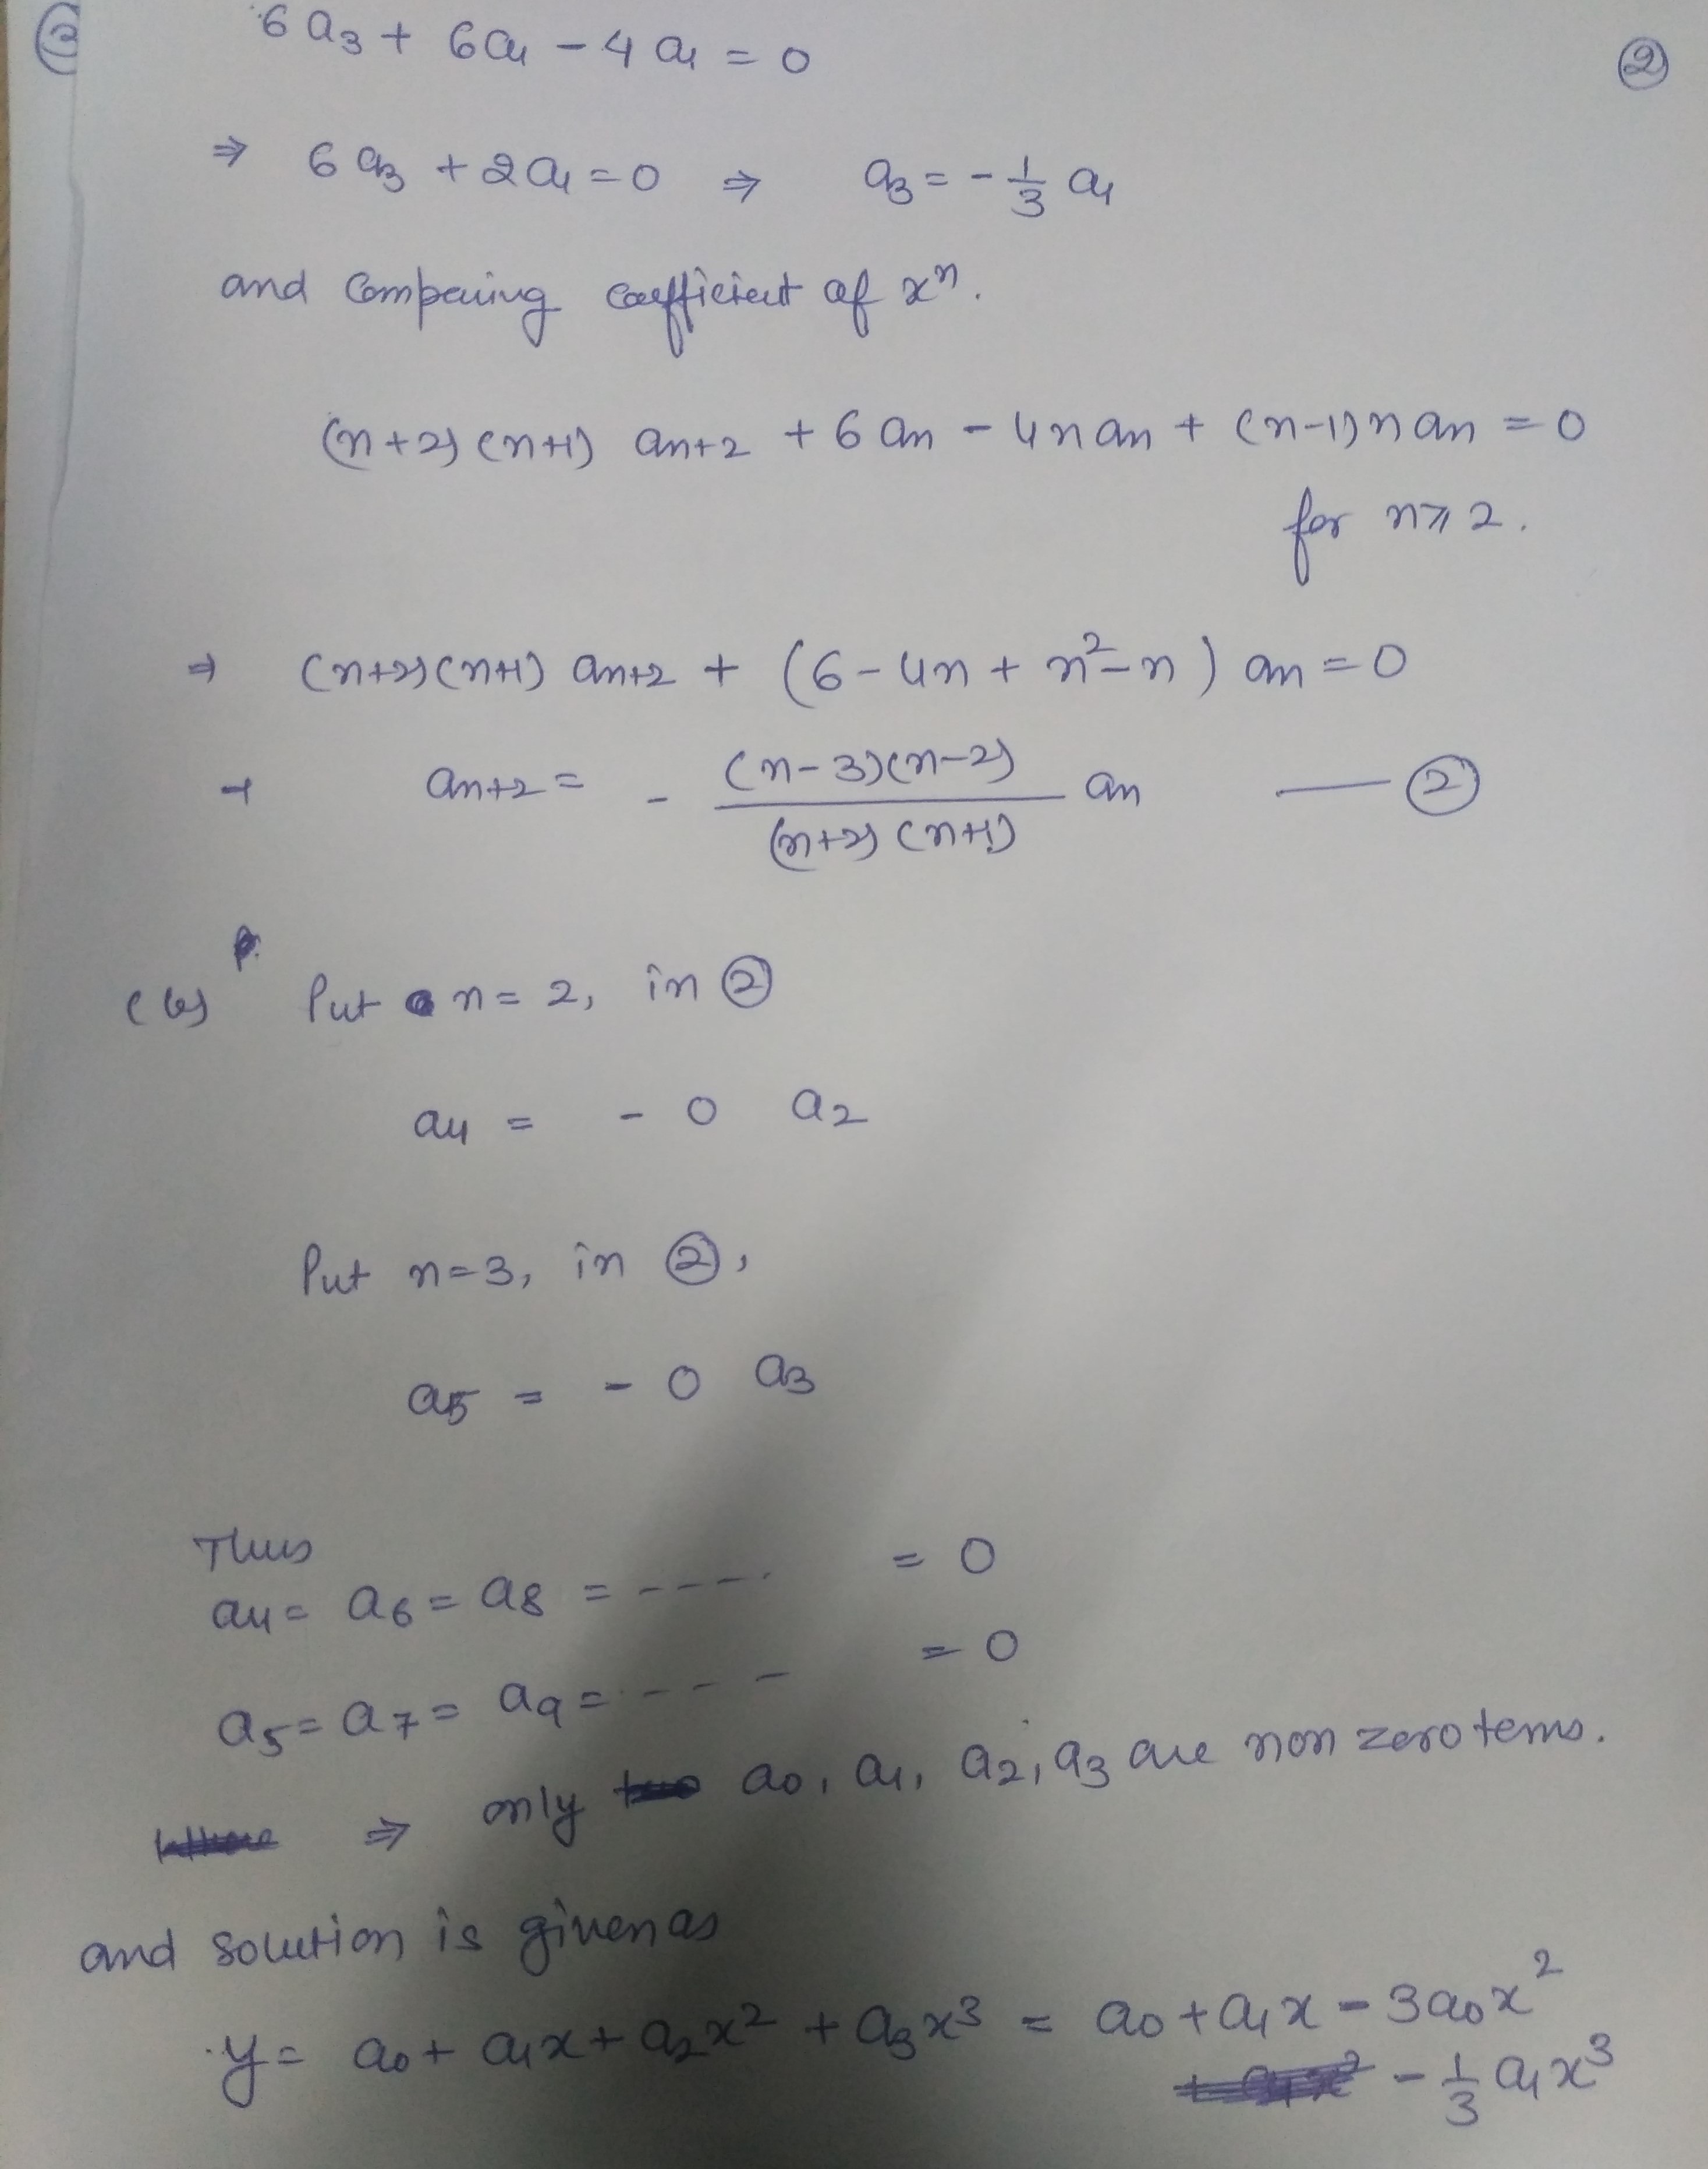 ③ ②
6a₃ + 6a₁ - 4a₁ = 0
⇒ 6a₃ + 2a₁ = 0 ⇒ a₃ = - 1/3 a₁
and Comparing coefficient of xⁿ.
(n+2)(n+1) aₙ₊₂ + 6aₙ - 4naₙ + (n-1)naₙ = 0
for n ⩾ 2.
⇒ (n+2)(n+1) aₙ₊₂ + (6 - 4n + n² - n) aₙ = 0
⇒ aₙ₊₂ = - (n-3)(n-2) / (n+2)(n+1) aₙ — ②
(b) Put n = 2, in ②
a₄ = - 0 a₂
Put n = 3, in ②,
a₅ = - 0 a₃
Thus
a₄ = a₆ = a₈ = ----. = 0
a₅ = a₇ = a₉ = --- - = 0
⇒ only a₀, a₁, a₂, a₃ are non zero tems.
and solution is given as
y = a₀ + a₁x + a₂x² + a₃x³ = a₀ + a₁x - 3a₀x²
- 1/3 a₁x³